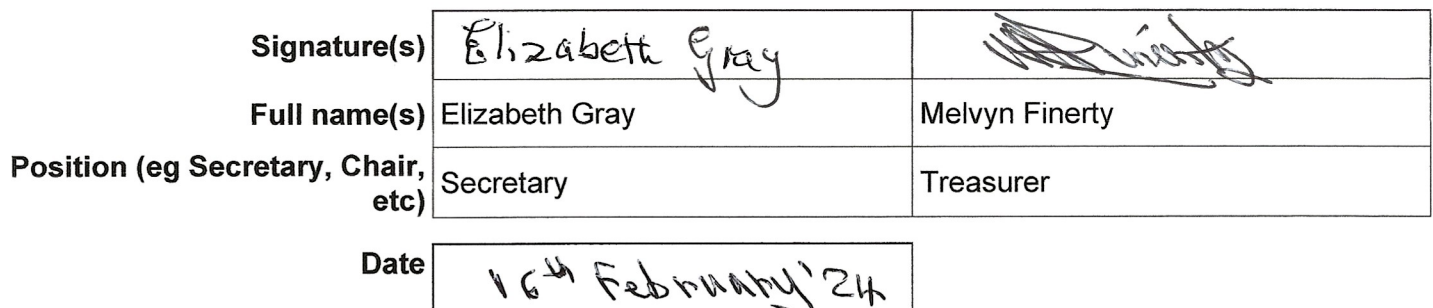 Signature(s) Elizabeth Gray
Full name(s) Elizabeth Gray Melvyn Finerty
Position (eg Secretary, Chair, etc) Secretary Treasurer
Date 16th February '24